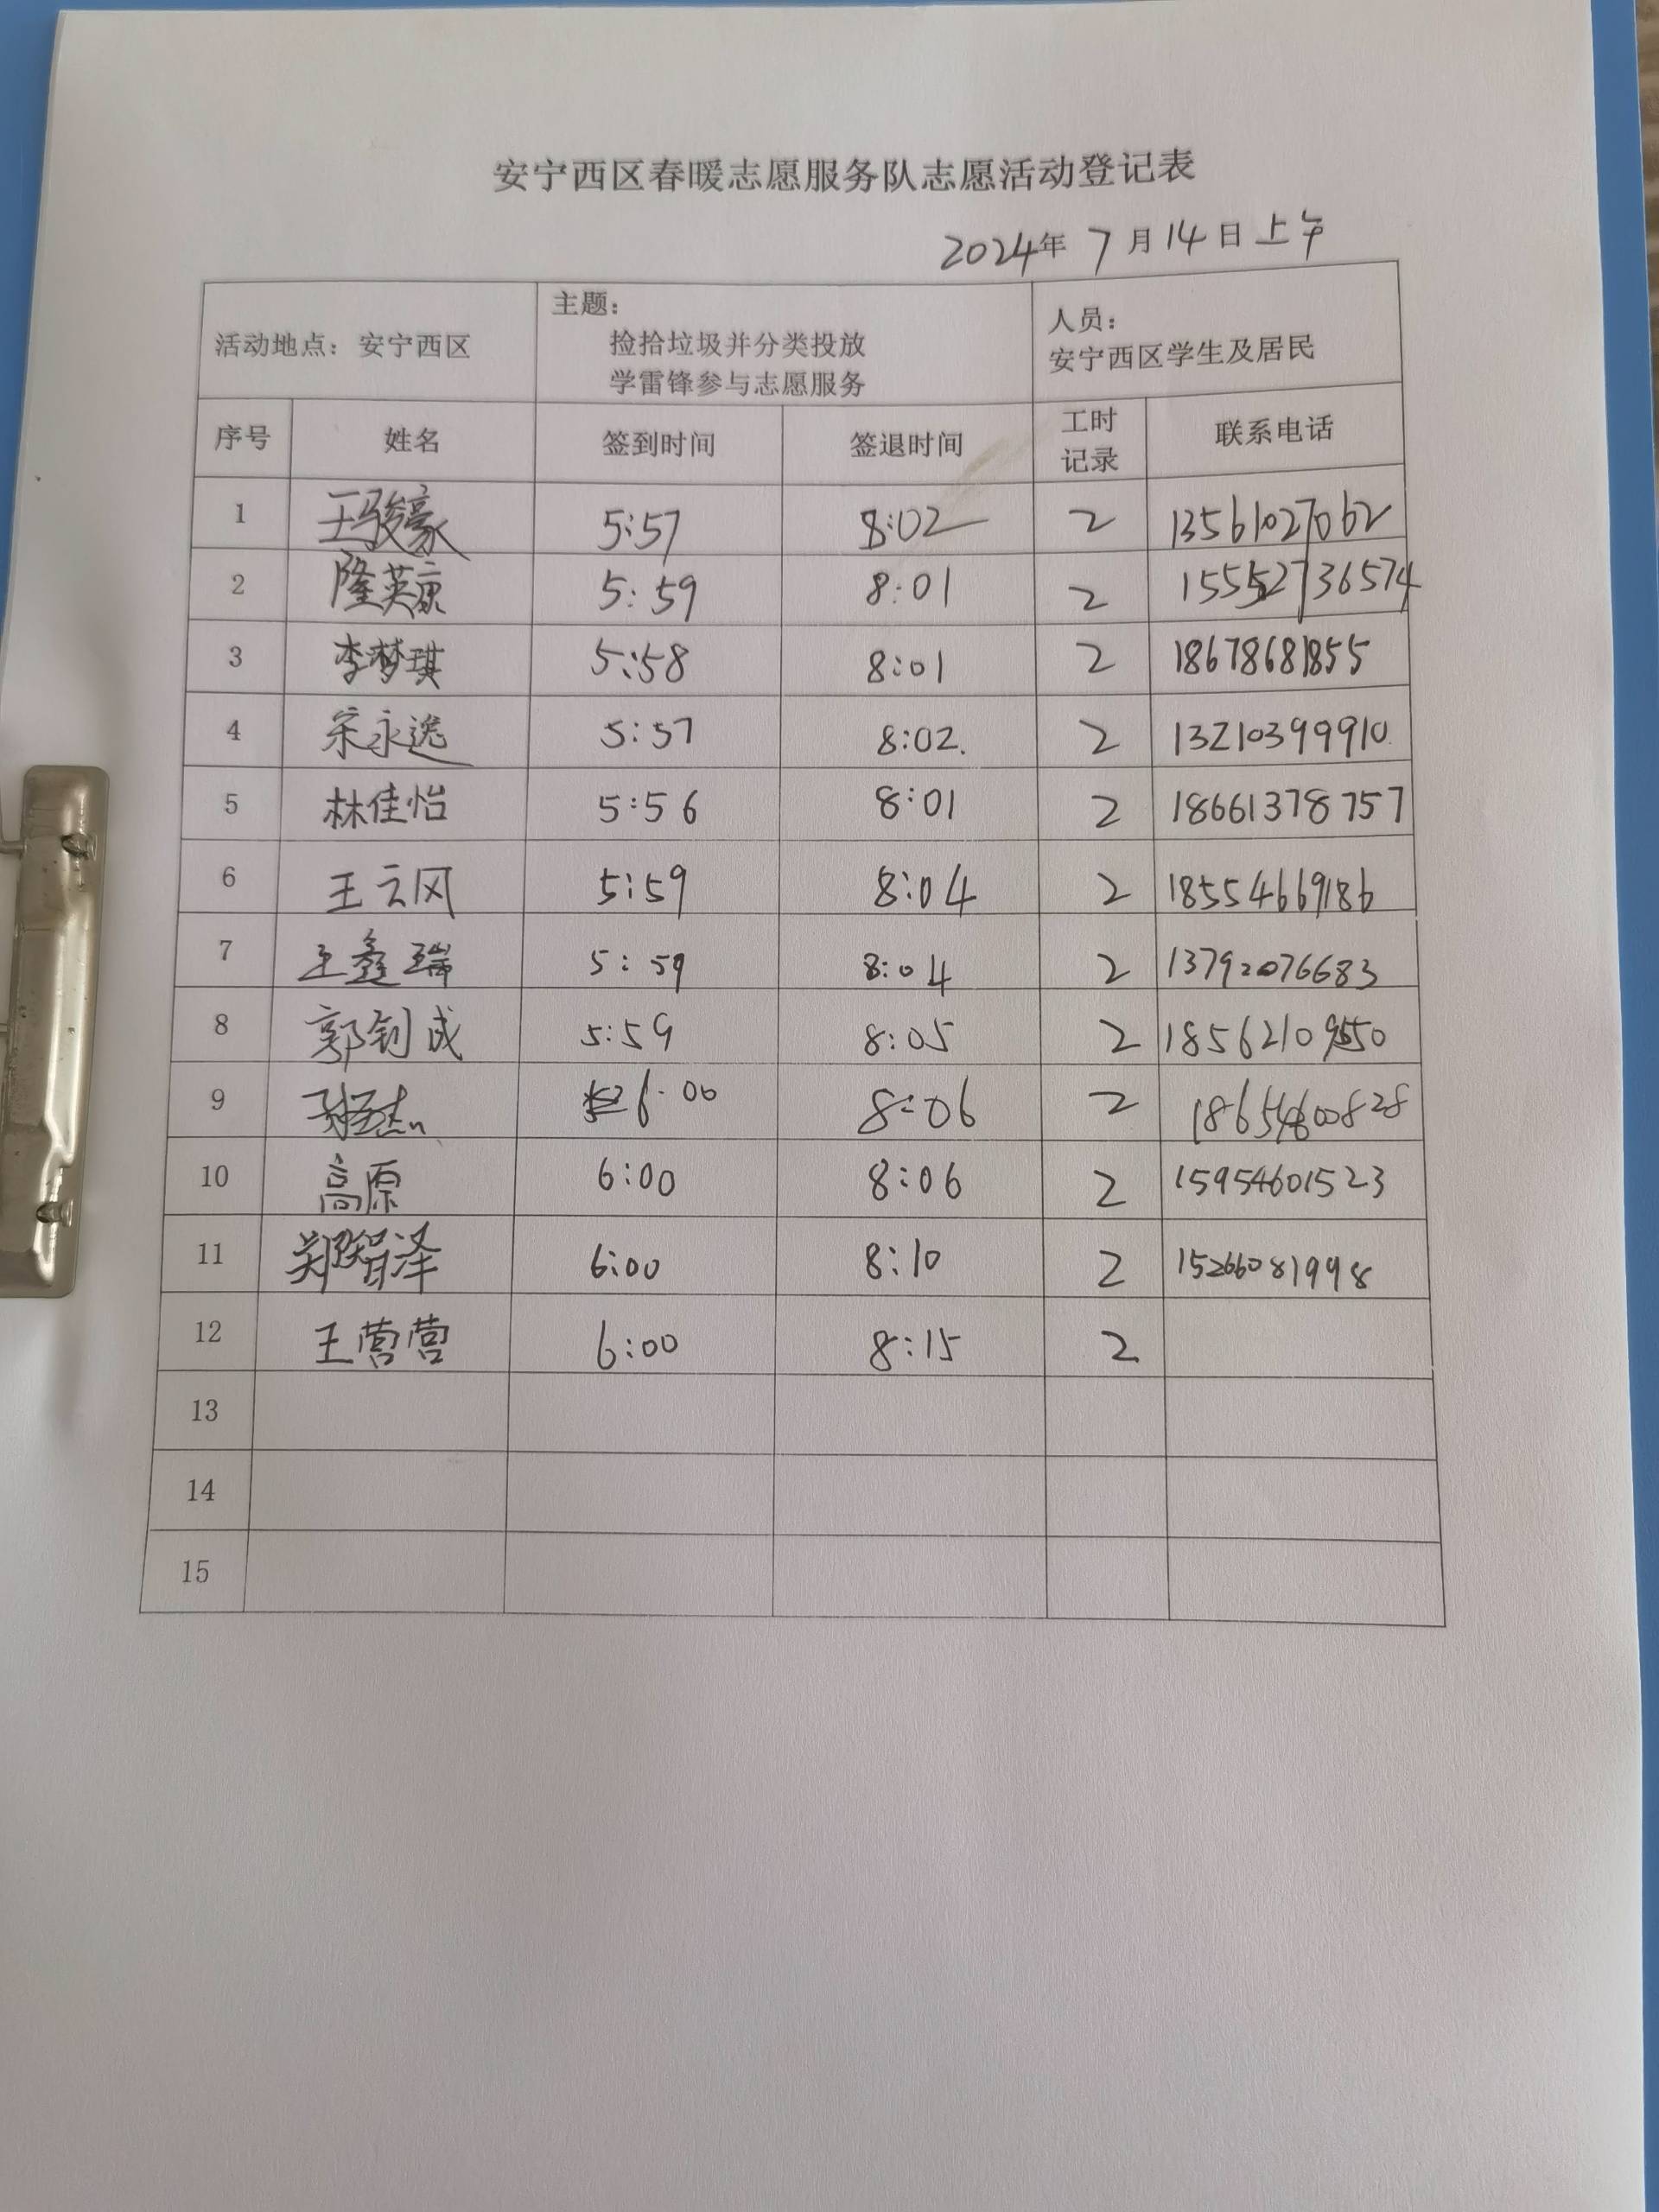 安宁西区春暖志愿服务队志愿活动登记表
2024年 7 月 14 日 上午
活动地点：安宁西区
主题：
捡拾垃圾并分类投放
学雷锋参与志愿服务
人员：
安宁西区学生及居民
序号 姓名 签到时间 签退时间 工时记录 联系电话
1 王骏豪 5:57 8:02 2 13561027062
2 隆英康 5:59 8:01 2 15552736574
3 李梦琪 5:58 8:01 2 18678681855
4 宋永逸 5:57 8:02. 2 13210399910
5 林佳怡 5:56 8:01 2 18661378757
6 王云风 5:59 8:04 2 18554669186
7 王鑫瑞 5:59 8:04 2 13792076683
8 郭钊成 5:59 8:05 2
9 6:00 8:06 2
10 高原 6:00 8:06 2 15954601523
11 郑智泽 6:00 8:10 2 15266081998
12 王营营 6:00 8:15 2
13
14
15